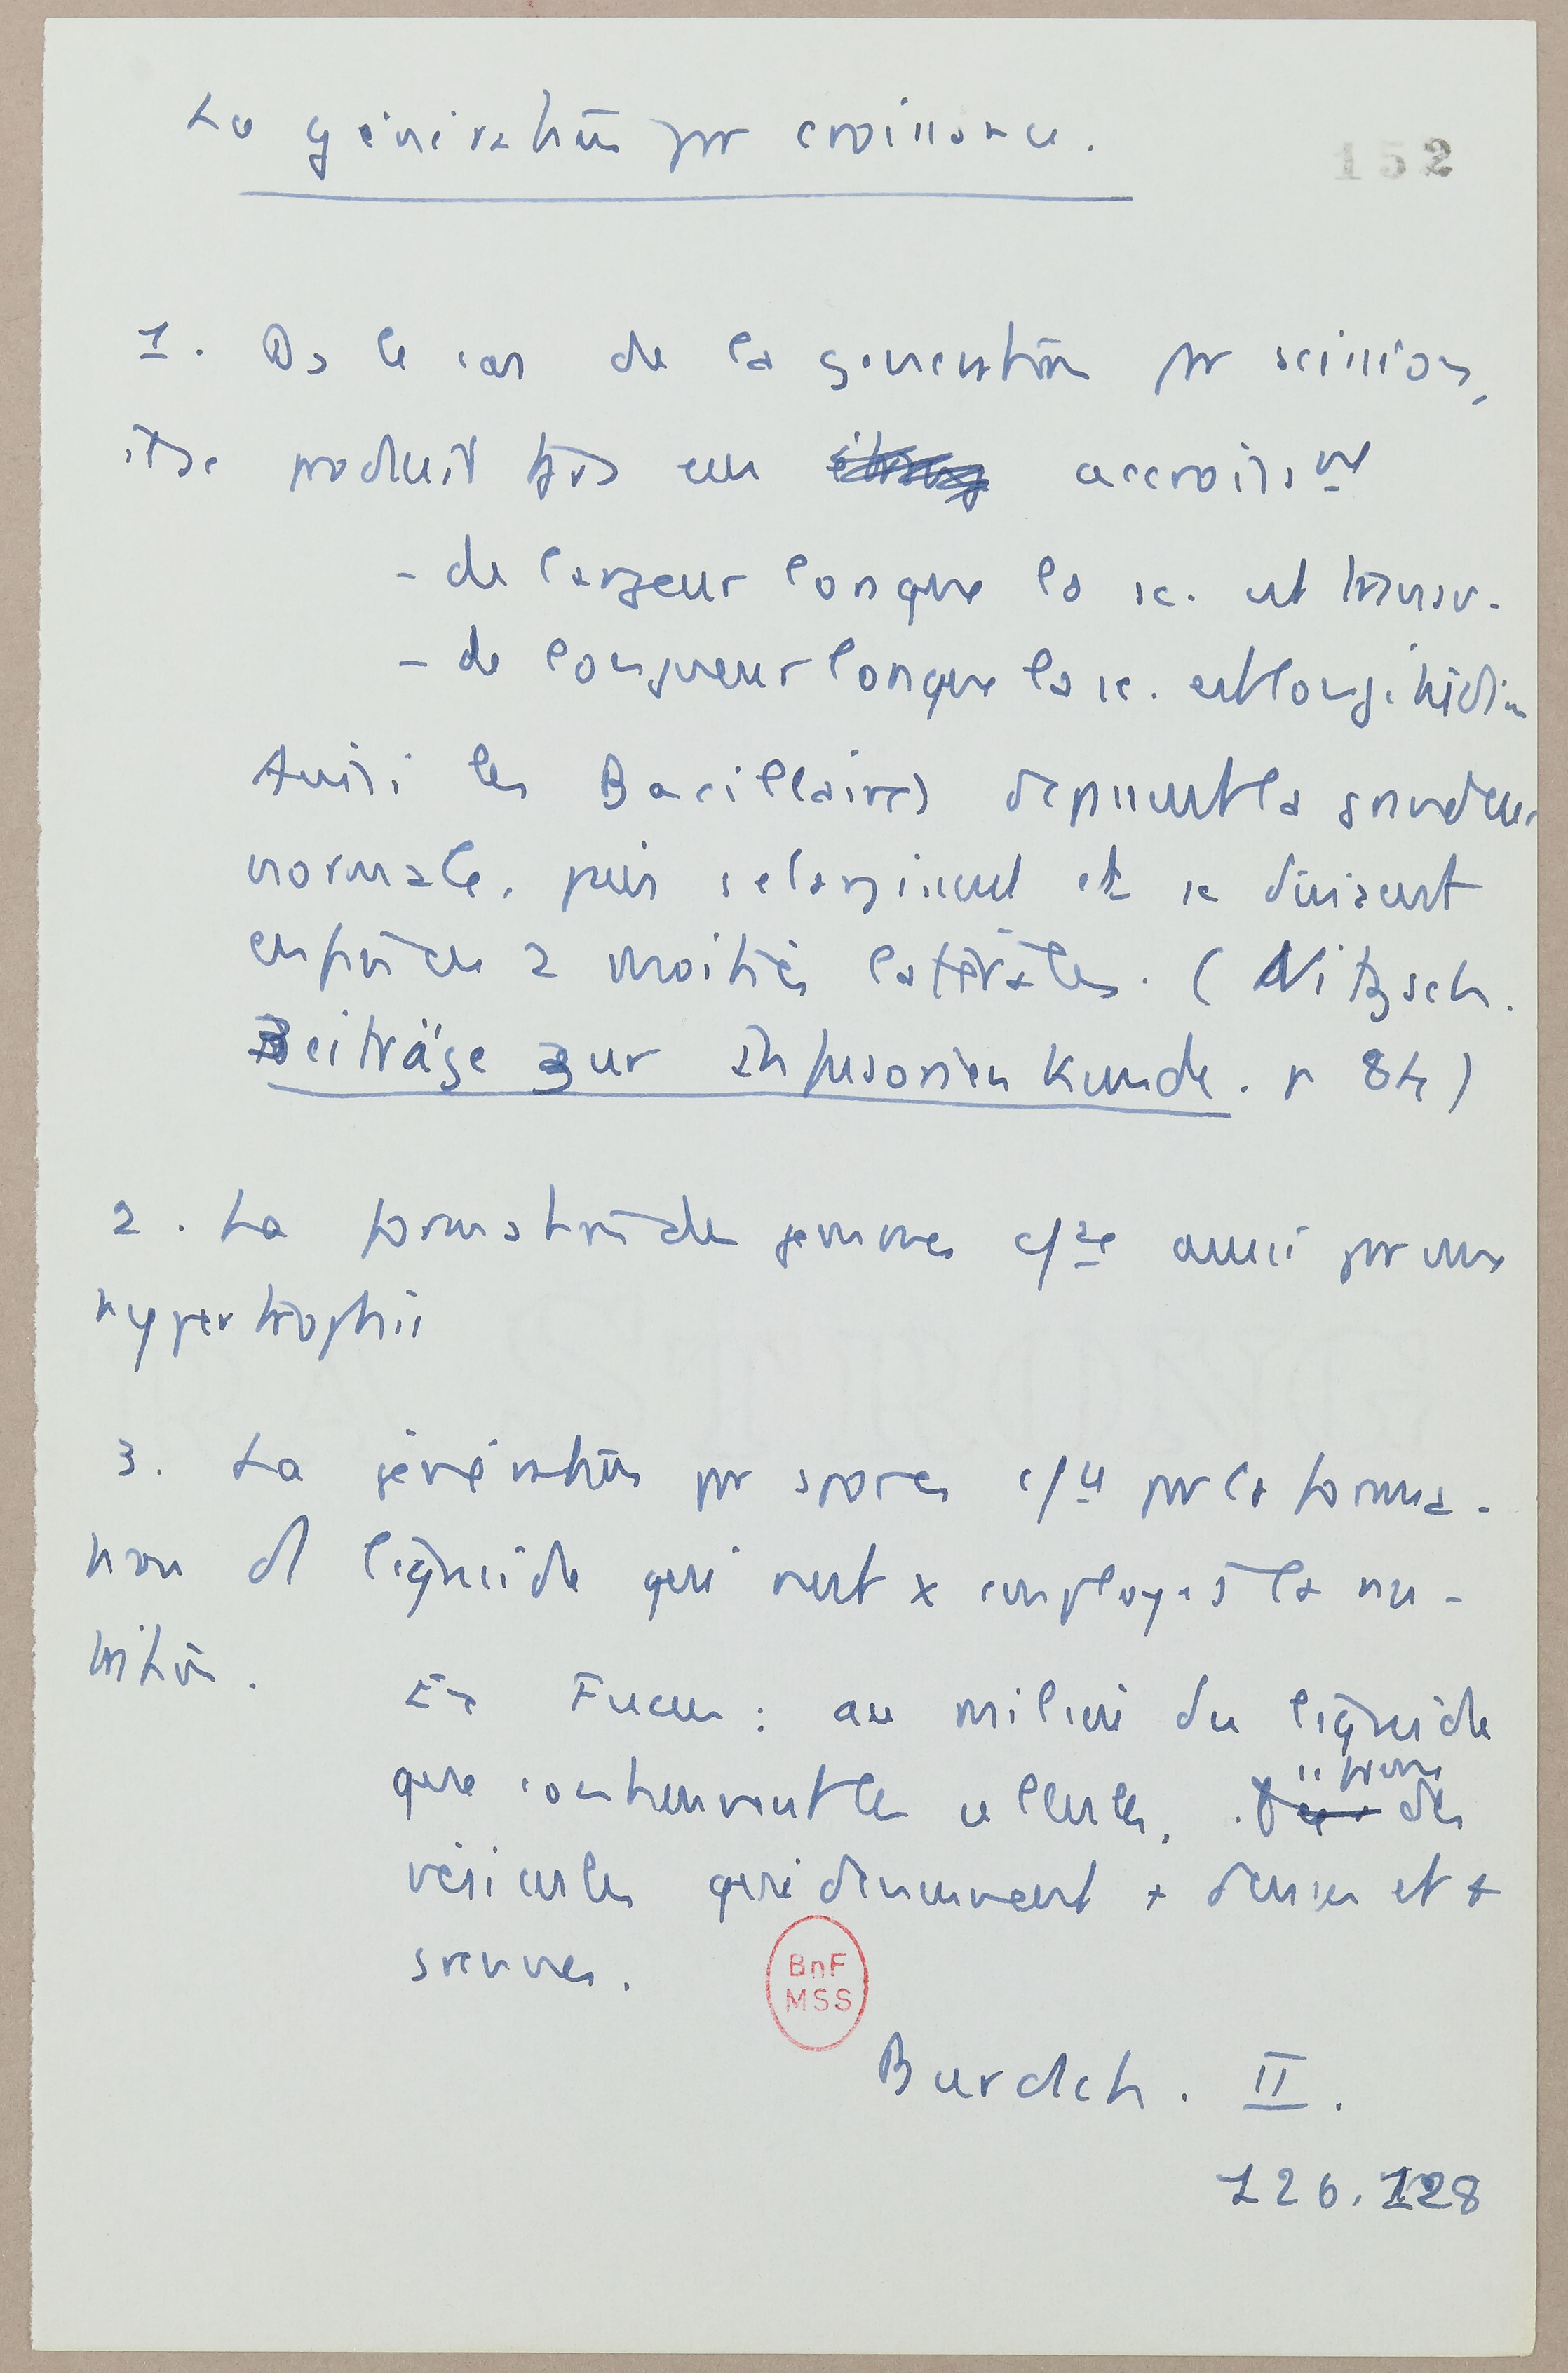 La génération pr croissance.
152
1. Ds le cas de la génération pr scission,
il se produit tjrs un accroisst
- de largeur lorsque la sc. est transv.
- de longueur lorsque la sc. est longitudin
Ainsi les Bacillaires dépassent la grandeur
normale, puis s'élargissent et se divisent
enfin en 2 moitiés latérales. (Nitzsch.
Beiträge zur Infusorienkunde. p 84)
2. La formation de gemmes c/ce aussi par une
hypertrophie
3. La génération pr spores c/ce par la forma-
tion d liquide qui n'est x employé à la nu-
trition.
Ex Fucus : au milieu du liquide
que contiennent les cellules, il se forme des
vésicules qui deviennent + denses et +
grenues.
BnF
MSS
Burdch. II.
126.128